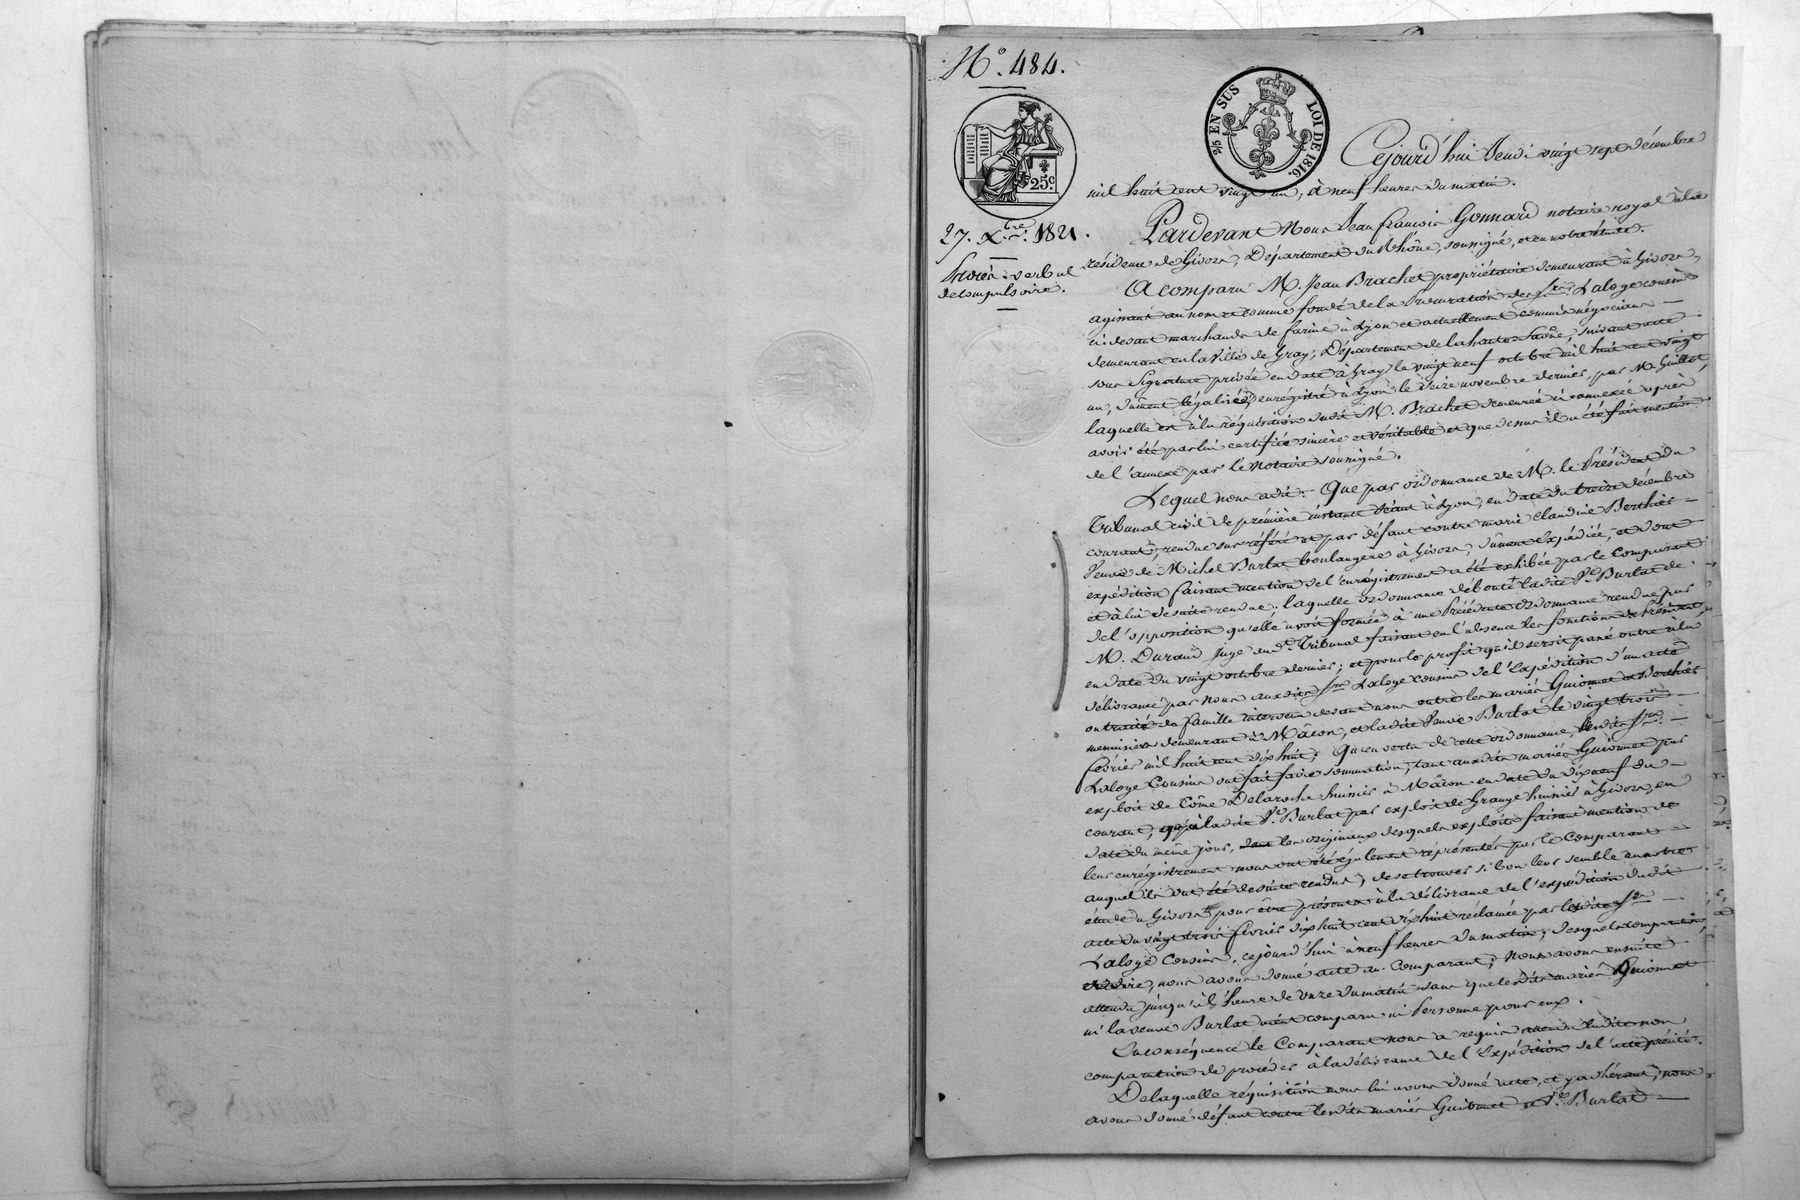 N.° 484.
2/5 EN SUS
LOI DE 1816.
25c.
27. Xbre. 1821.
Procès-verbal
de compulsoire.
Cejourd'hui Jeudi vingt sept décembre
mil huit cent vingt un, à neuf heures du matin.
Pardevant Nous Jean françois Gonnard notaire royal à la
résidence de Givors, Département du Rhône, soussigné, et en notre étude.
A comparu M. Jean Brachet propriétaire demeurant à Givors,
agissant au nom et comme fondé de la Procuration des Srs. Laloge cousins
ci-devant marchands de farine à Lyon et actuellement commis négocians
demeurant en la Ville de Gray, Département de la haute Saône, suivant acte
sous signature privée en date à Gray le vingt neuf octobre mil huit cent vingt
un, dûment légalisée, enregistré à Lyon le seize novembre dernier, par M. Guillot,
laquelle est à la réquisition dudit M. Brachet demeurée ci-annexée après
avoir été par lui certifiée sincère et véritable et que dessus il a été fait mention
de l'annexe par le Notaire soussigné.
Lequel nous a dit: Que par ordonnance de M. le Président du
Tribunal civil de première instance séant à Lyon, en date du treize décembre
courant, rendue sur référé et par défaut contre marie claudine Berthier
Veuve de Michel Burlat boulangère à Givors, dûment expédiée, et dont
expédition faisant mention de l'enregistrement a été exhibée par le Comparant
et à lui de suite rendue, laquelle ordonnance déboute ladite Ve. Burlat de
de l'opposition qu'elle avoit formée à une Précédente ordonnance rendue par
M. Durand Juge audt. Tribunal faisant en l'absence les fonctions de Président,
en date du vingt octobre dernier; et pour le profit qu'il seroit passé outre à la
délivrance par Nous auxdits Srs Laloge cousins de l'Expédition d'un acte
ou traité de famille intervenu devant nous entre les mariés Guiomet et Berthier
menuisier demeurant à Mâcon, et ladite Veuve Burlat le vingt trois
février mil huit cent dix huit; Qu'en vertu de cette ordonnance, lesdits Srs
Laloge Cousins ont fait faire sommation, tant auxdits mariés Guiomet par
exploit de Côme Delaroche huissier à Mâcon en date du dix neuf du
courant, qu'à ladite Ve. Burlat par exploit de Grange huissier à Givors, en
date du même jour, les originaux desquels exploits faisant mention de
leur enregistrement nous ont été également représentés par le Comparant
auquel ils ont été de suite rendus, de se trouver si bon leur semble en notre
étude à Givors pour être présents à la délivrance de l'expédition dudit
acte du vingt trois février dix huit cent dix huit réclamée par lesdits Srs
Laloge Cousins, cejourd'hui à neuf heures du matin; desquels comparution,
et dire, nous avons donné acte au Comparant; Nous avons ensuite
attendu jusqu'à l'heure de onze du matin sans que lesdits mariés Guiomet
ni la veuve Burlat aient comparu ni Personne pour eux.
En conséquence le Comparant nous a requis attendu ladite non
comparution de procéder à la délivrance de l'Expédition de l'acte précité.
De laquelle réquisition nous lui avons donné acte, et y adhérant, nous
avons donné défaut contre lesdits mariés Guiomet et Ve. Burlat